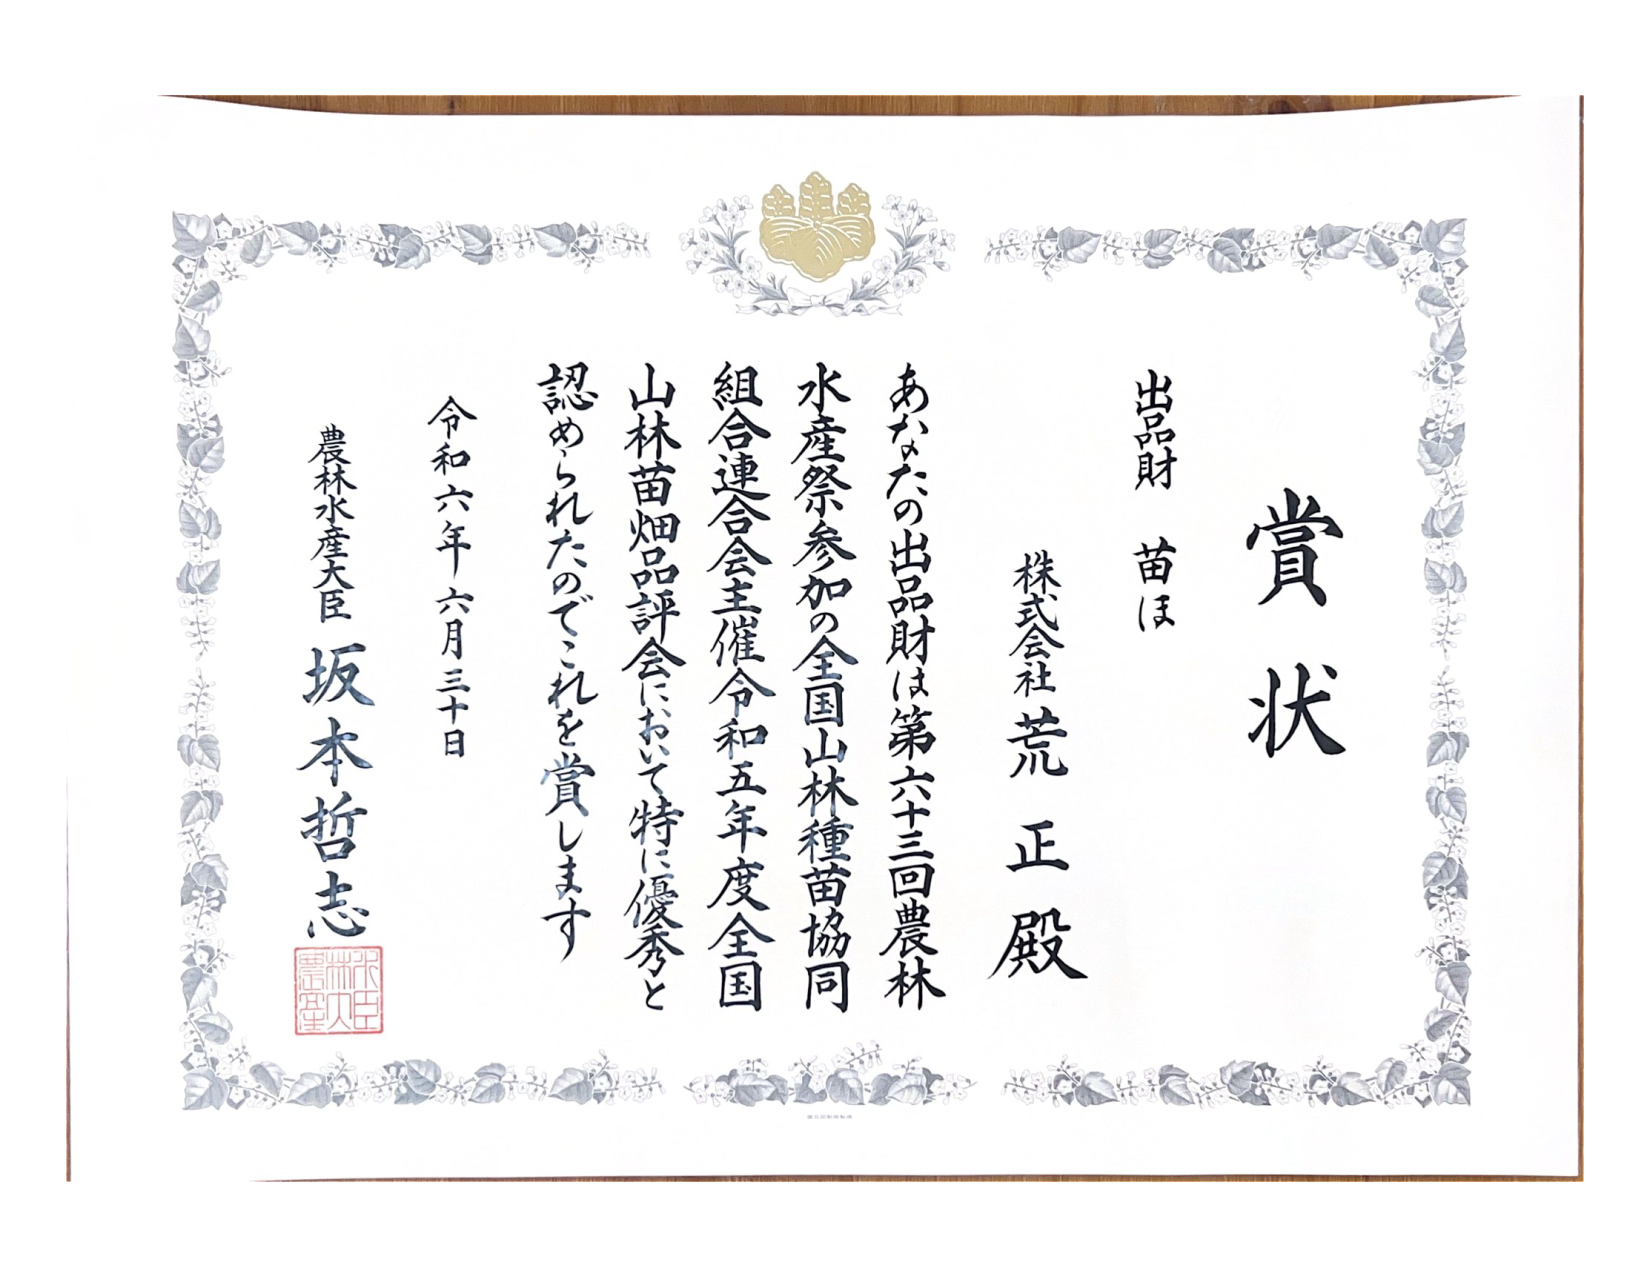 賞状
出品財　苗ほ
株式会社 荒正殿
あなたの出品財は第六十三回農林
水産祭参加の全国山林種苗協同
組合連合会主催令和五年度全国
山林苗畑品評会において特に優秀と
認められたのでこれを賞します
令和六年六月三十日
農林水産大臣 坂本哲志